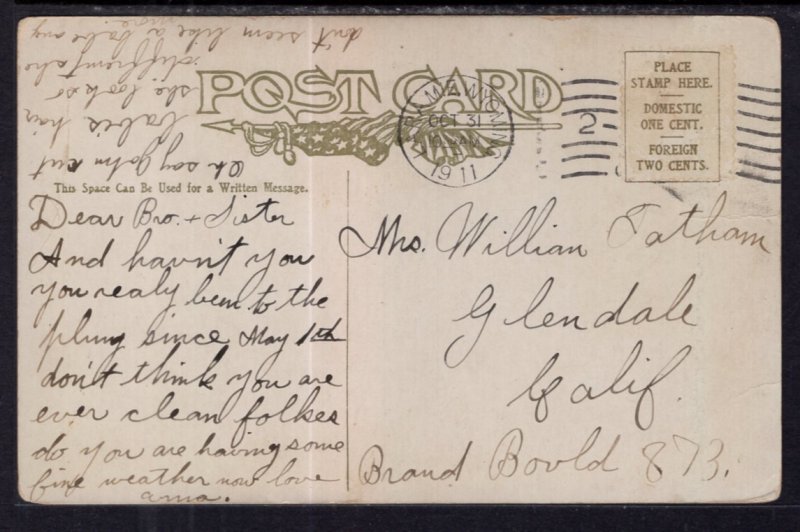 POST CARD
PLACE
STAMP HERE.
DOMESTIC
ONE CENT.
FOREIGN
TWO CENTS.
LARAMIE, WYOMING
OCT 31
AM
1911
2
This Space Can Be Used for a Written Message.
Dear Bro. + Sister
And havn't you
you realy ben to the
plung since May 1th
don't think you are
ever clean folkes
do you are having some
fine weather now love
anna.
Oh say John cut
babis hair
she look so
different she
don't seem like a babe any
more.
Mrs. William Tatham
Glendale
Calif.
Brand Bovld 873.